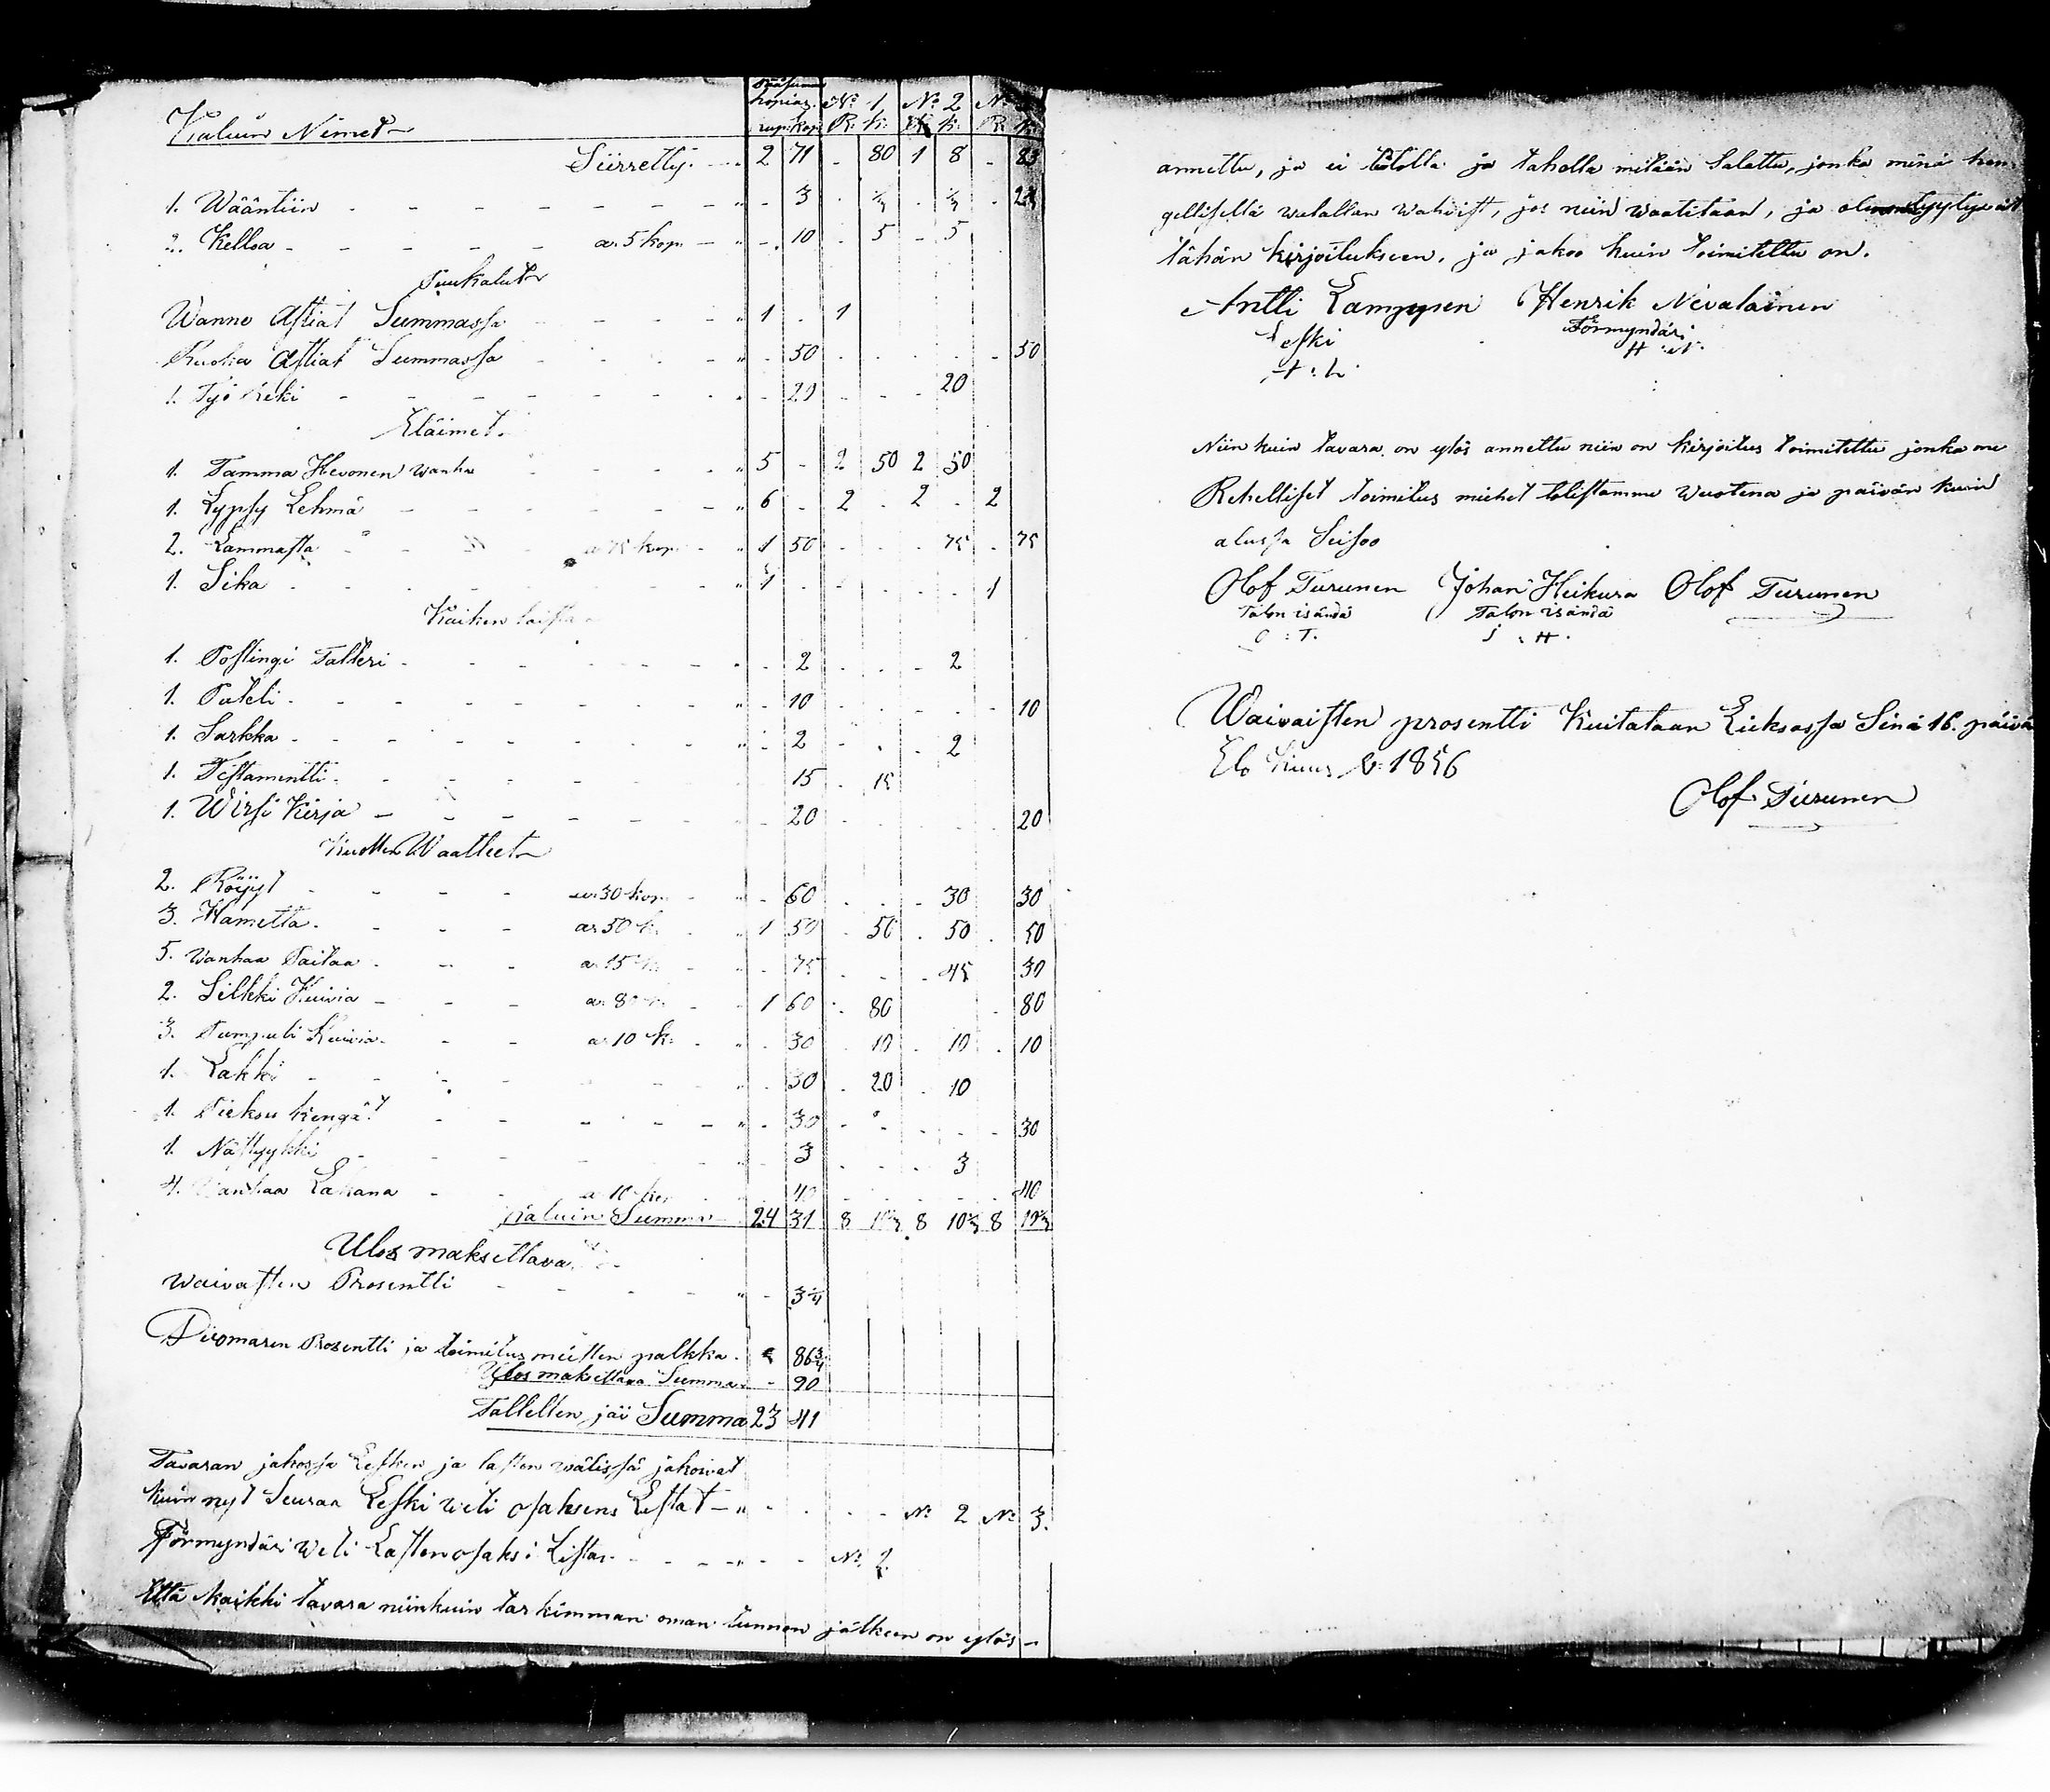 Kaluin Nimet
hopias. No 1 No 2 No
rup. kop. R. k. R. k. R. k.
Siirretty. 2 71 - 80 1 8 - 83
1. Wääntiin - 3 - ½ - ½ - 2
2. Kelloa a. 5 kop. - 10 - 5 - 5
Puukalut
Wanno Astiat Summassa 1 - 1
Ruoka Astiat Summassa - 50 - 50
1. Työ Reki - 20 - 20
Eläimet.
1. Tamma Hevonen wanha 5 - 2 50 2 50
1. Lypsy Lehmä 6 - 2 - 2 - 2
2. Lammasta a 75 kop. 1 50 - 75 - 75
1. Sika 1 - 1
Kaiken laista
1. Postingi Talteri - 2 - 2
1. Puteli - 10 - 10
1. Sarkka - 2 - 2
1. Testamentti - 15 - 15
1. Wirsi Kirja - 20 - 20
Kuollen Waatteet
2. Röijyt a. 30 kop. - 60 - 30 30
3. Hametta. a. 50 k. 1 50 - 50 - 50 - 50
5. Wanhaa Paitaa a. 15 k. - 75 - 45 30
2. Silkki Huivia a. 80 k. 1 60 - 80 - 80
3. Pumpuli Huivia a. 10 k. - 30 - 10 - 10 - 10
1. Lakki - 30 - 20 - 10
1. Pieksu kengät - 30 - 30
1. Nästyykki - 3 - 3
4. Wanhaa Lakana a 10 kop - 40 - 40
Kaluin Summa 24 31 8 10⅓ 8 10⅓ 8 10⅓
Ulos maksettava
Waivasten Prosentti - 3¼
Pivomaren Prosentti ja toimitus miesten palkka. - 86¾
Ulos maksettava Summa - 90
Tallellen jäi Summa 23 41
Tavaran jakossa Lesken ja lasten wälissä jakoivat
kuin nyt Seuraa Leski weti osaksens Lestat - No 2 No 3.
Förmyndäri weti Lasten osaksi Listar - No
Että kaikki tavara niinkuin tarkimman oman tunnon jälkeen on ylös-
annettu, ja ei tiitolla ja taholla mitään Salattu, jonka minä hen-
gellisellä walallan wahvist, jos niin waaditaan, ja olemme tyytyväiset
tähän kirjoitukseen, ja jakoo kuin toimitettu on.
Antti Lamppinen Henrik Nevalainen
Leski Förmyndäri
A : L H : N.
Niin kuin tavara on ylös annettu niin on kirjoitus toimitettu jonka me
Rehelliset toimitus miehet tolistamme Wuotena ja päivän kuin
alussa Seisoo
Olof Turunen Johan Heikura Olof Turunen
Talon isändä Talon isändä
O : T. J : H.
Waivaisten prosentti Kuitataan Lieksassa Sinä 16. päivä
Elo Kuus v. 1856
Olof Turunen